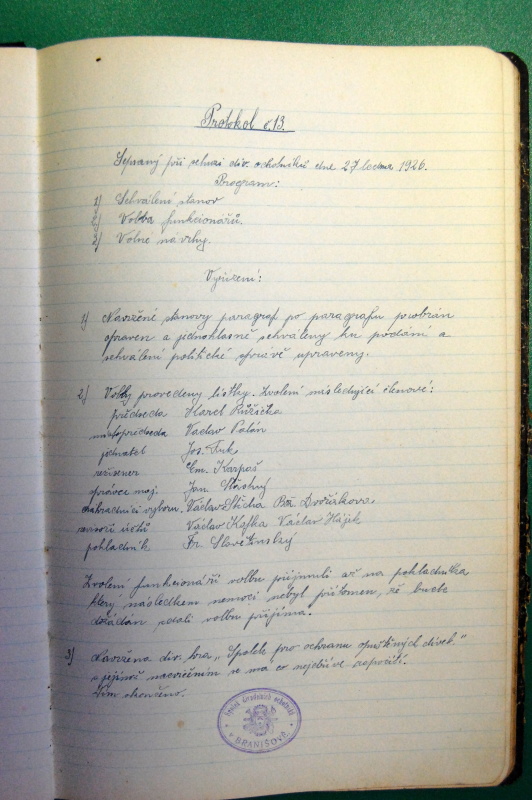 Protokol č. 13.
Sepsaný při schůzi div. ochotníků dne 27 ledna 1926.
Program:
1) Schválení stanov
2) Volba funkcionářů.
3) Volné návrhy.
Vyřízení:
1) Navržené stanovy paragraf po paragrafu probrán
opraven a jednohlasně schváleny ku podání a
schválení politické správě upraveny.
2) Volby provedeny lístky. Zvoleni následující členové:
předseda Karel Růžička
místopředseda Václav Polán
jednatel Jos. Fuk
režisér Em. Karpaš
správce maj. Jan Šťastný
náhradníci výboru. Václav Sticha Bož. Dvořáková
revisoři účtů Václav Kafka Václav Hájek
pokladník Fr. Slavětínský
Zvolení funkcionáři volbu přijmuli až na pokladníka
který následkem nemoci nebyl přítomen, že bude
dožádán zdali volbu přijímá.
3) Navržena div. hra „Spolek pro ochranu opuštěných dívek."
s jejímž nacvičením se má co nejdříve započíti.
Tím skončeno.
Spolek divadelních ochotníků
v BRANIŠOVĚ